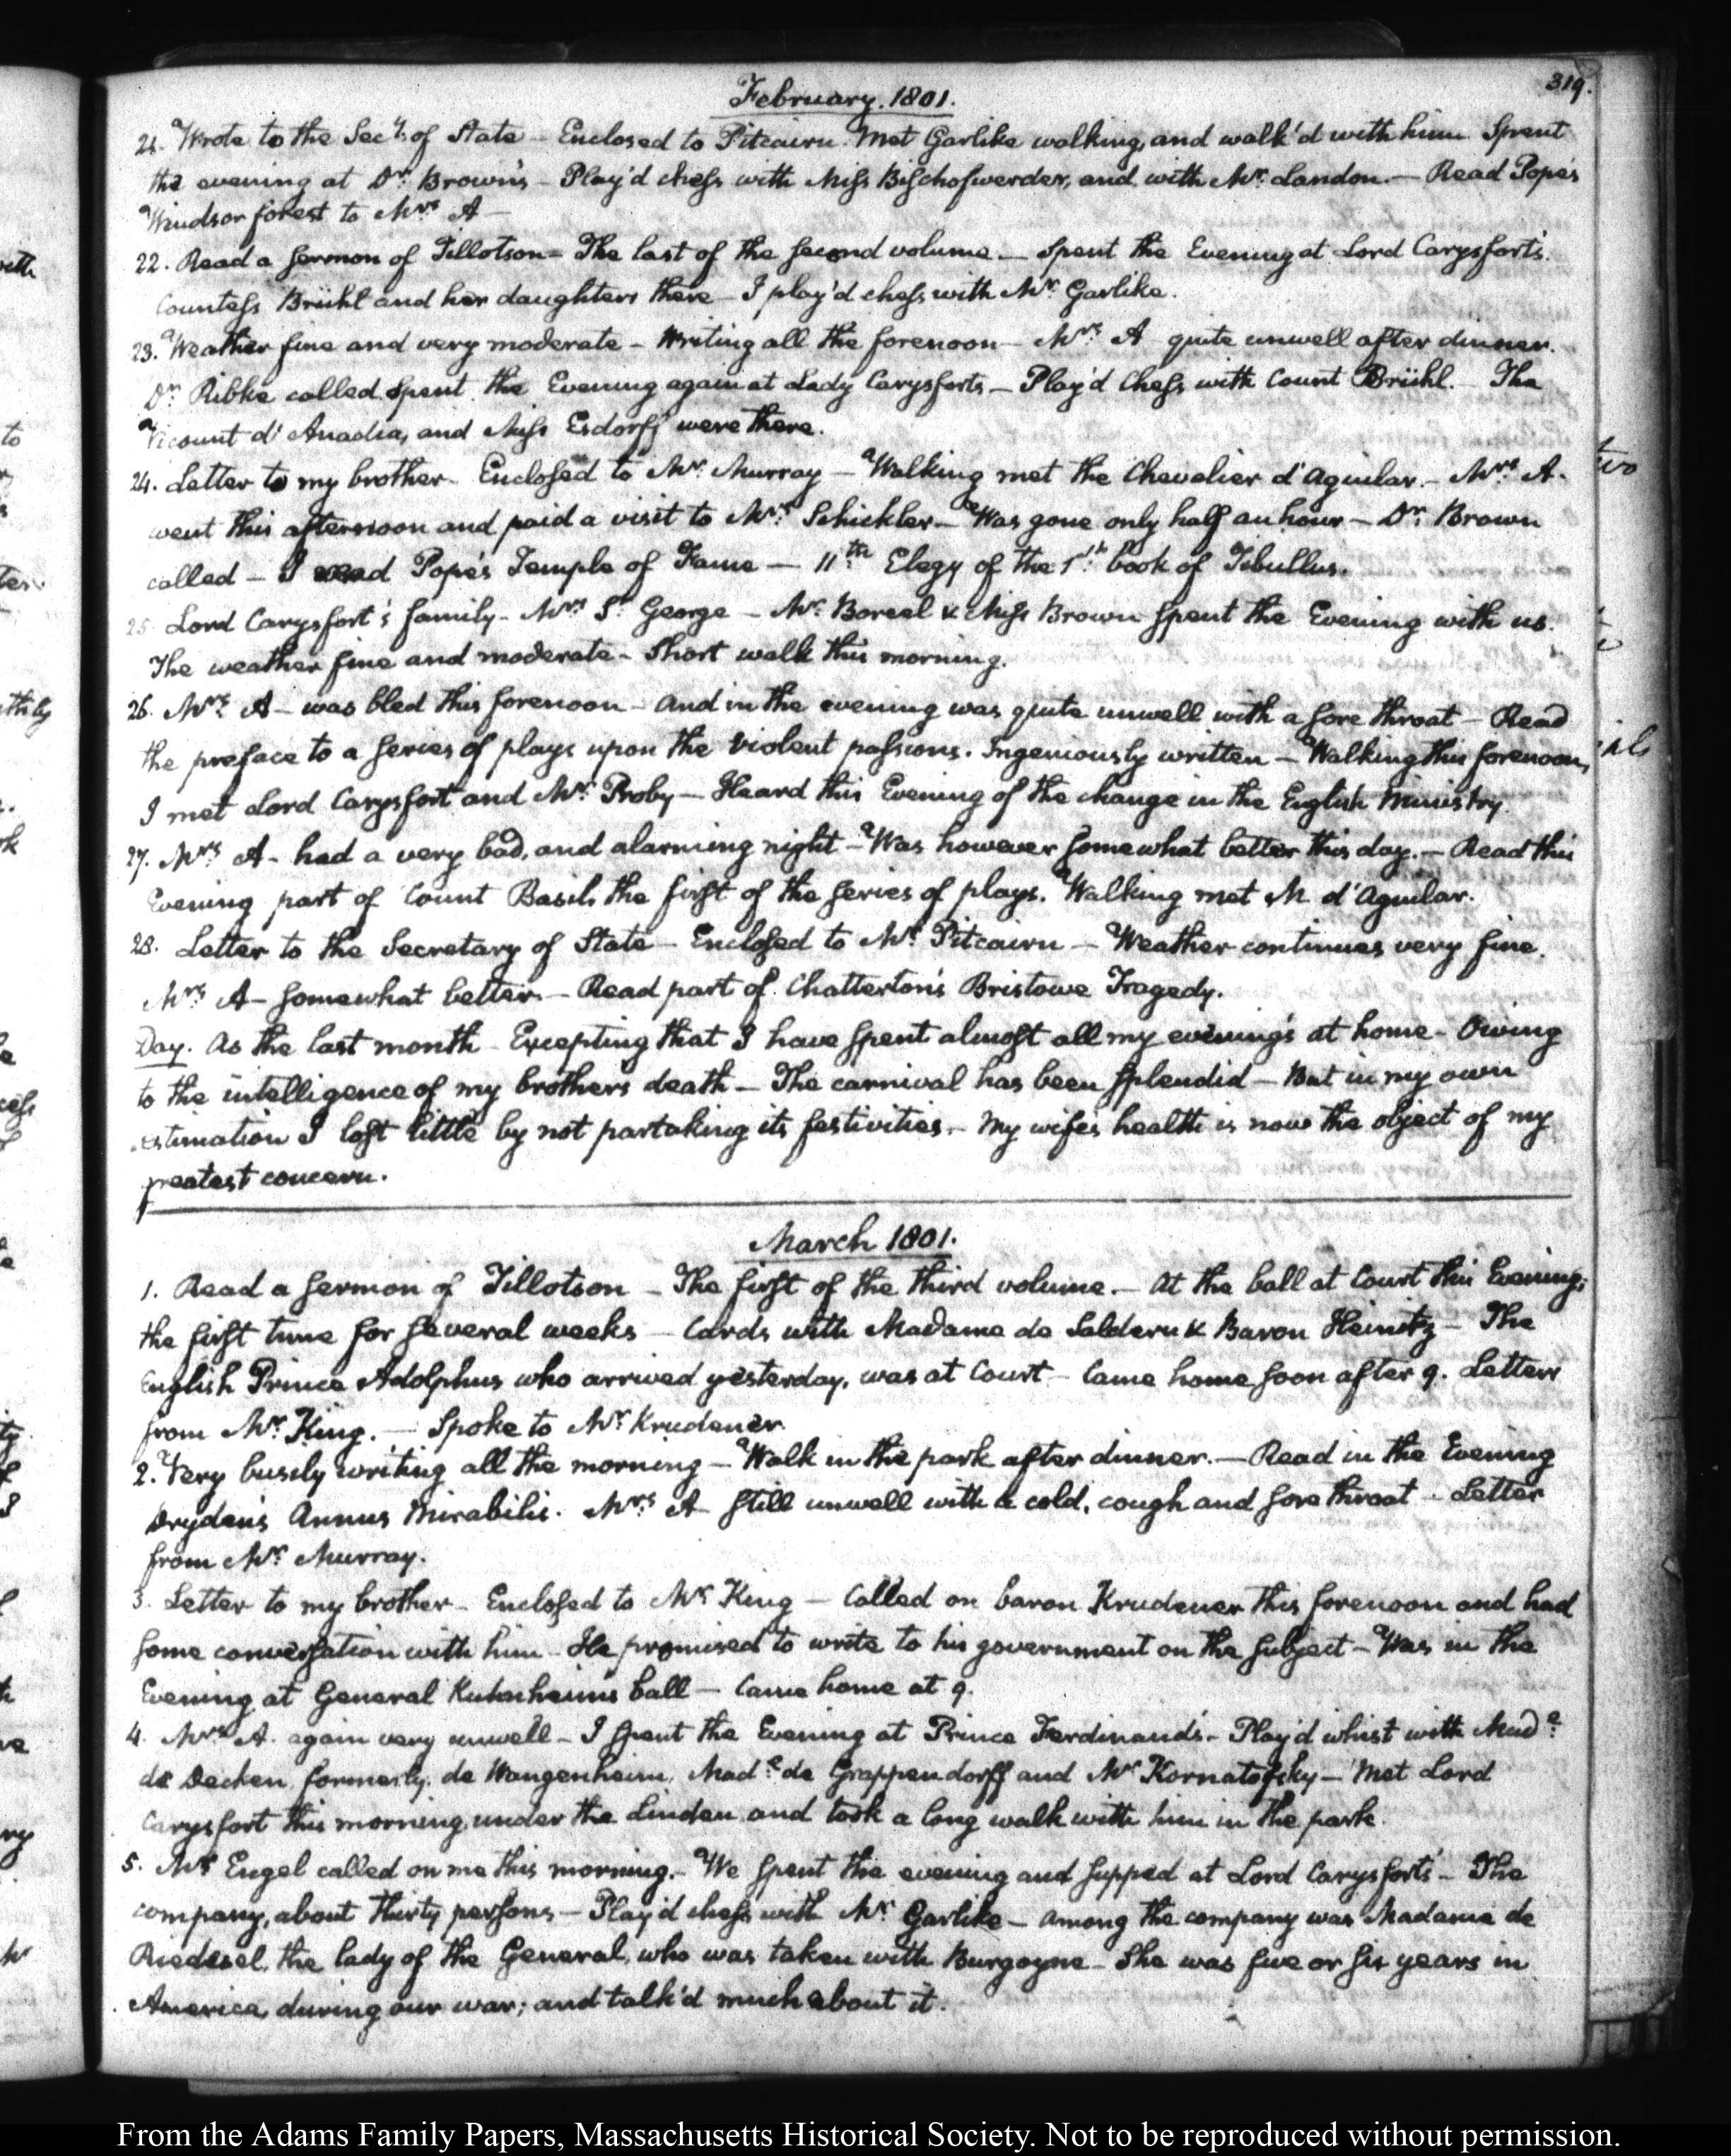 319.
February. 1801.
21. Wrote to the Secy. of State - Enclosed to Pitcairn. Met Garlike walking, and walk'd with him. Spent
the evening at Dr. Brown's - Play'd chess with Miss Bischofwerder, and with Mr. Landon. - Read Pope's
Windsor forest to Mrs. A -
22. Read a sermon of Tillotson - The last of the second volume. - Spent the Evening at Lord Carysfort's.
Countess Brühl and her daughters there - I play'd chess with Mr. Garlike.
23. Weather fine and very moderate - Writing all the forenoon - Mrs. A quite unwell after dinner.
Dr. Ribke called. Spent the Evening again at Lady Carysfort's - Play'd Chess with Count Brühl. - The
Vicount d'Anadia, and Miss Esdorff were there.
24. Letter to my brother. Enclosed to Mr. Murray - Walking met the Chevalier d'Aguilar. - Mrs. A.
went this afternoon and paid a visit to Mrs. Schickler - Was gone only half an hour - Dr. Brown
called - I read Pope's Temple of Fame - 11th. Elegy of the 1st. book of Tibullus.
25. Lord Carysfort's family - Mrs. St. George - Mr. Boreel & Miss Brown spent the Evening with us.
The weather fine and moderate - Short walk this morning.
26. Mrs. A - was bled this forenoon - And in the evening was quite unwell with a sore throat - Read
the preface to a series of plays upon the violent passions. Ingeniously written - Walking this forenoon,
I met Lord Carysfort and Mr. Proby - Heard this Evening of the change in the English Ministry.
27. Mrs. A - had a very bad, and alarming night - Was however somewhat better this day. - Read this
Evening part of Count Basil, the first of the series of plays. Walking met M. d'Aguilar.
28. Letter to the Secretary of State - Enclosed to Mr. Pitcairn - Weather continues very fine.
Mrs. A - somewhat better. - Read part of Chatterton's Bristowe Tragedy.
Day. As the last month - Excepting that I have spent almost all my evenings at home - Owing
to the intelligence of my brothers death - The carnival has been splendid - But in my own
estimation I lost little by not partaking its festivities. - My wife's health is now the object of my
greatest concern.
March 1801.
1. Read a sermon of Tillotson - The first of the third volume. - At the ball at Court this Evening;
the first time for several weeks - Cards with Madame de Saldern & Baron Heinitz - The
English Prince Adolphus who arrived yesterday, was at Court - Came home soon after 9. Letters
from Mr. King. - Spoke to Mr. Krudener.
2. Very busily writing all the morning - Walk in the park after dinner. - Read in the Evening
Dryden's Annus Mirabilis. Mrs. A - still unwell with a cold, cough and sore throat - Letter
from Mr. Murray.
3. Letter to my brother - Enclosed to Mr. King - Called on baron Krudener this forenoon and had
some conversation with him - He promised to write to his government on the subject - Was in the
Evening at General Kuhnheim's ball - Came home at 9.
4. Mrs. A. again very unwell - I spent the Evening at Prince Ferdinand's - Play'd whist with Made.
de Decken, formerly de Wangenheim, Made. de Grappendorff and Mr. Kornatofsky - Met Lord
Carysfort this morning, under the Linden and took a long walk with him in the park.
5. Mr. Engel called on me this morning. - We spent the evening and supped at Lord Carysfort's - The
company, about thirty persons - Play'd chess with Mr. Garlike - Among the company was Madame de
Riedesel, the lady of the General, who was taken with Burgoyne - She was five or six years in
America, during our war; and talk'd much about it.
From the Adams Family Papers, Massachusetts Historical Society. Not to be reproduced without permission.